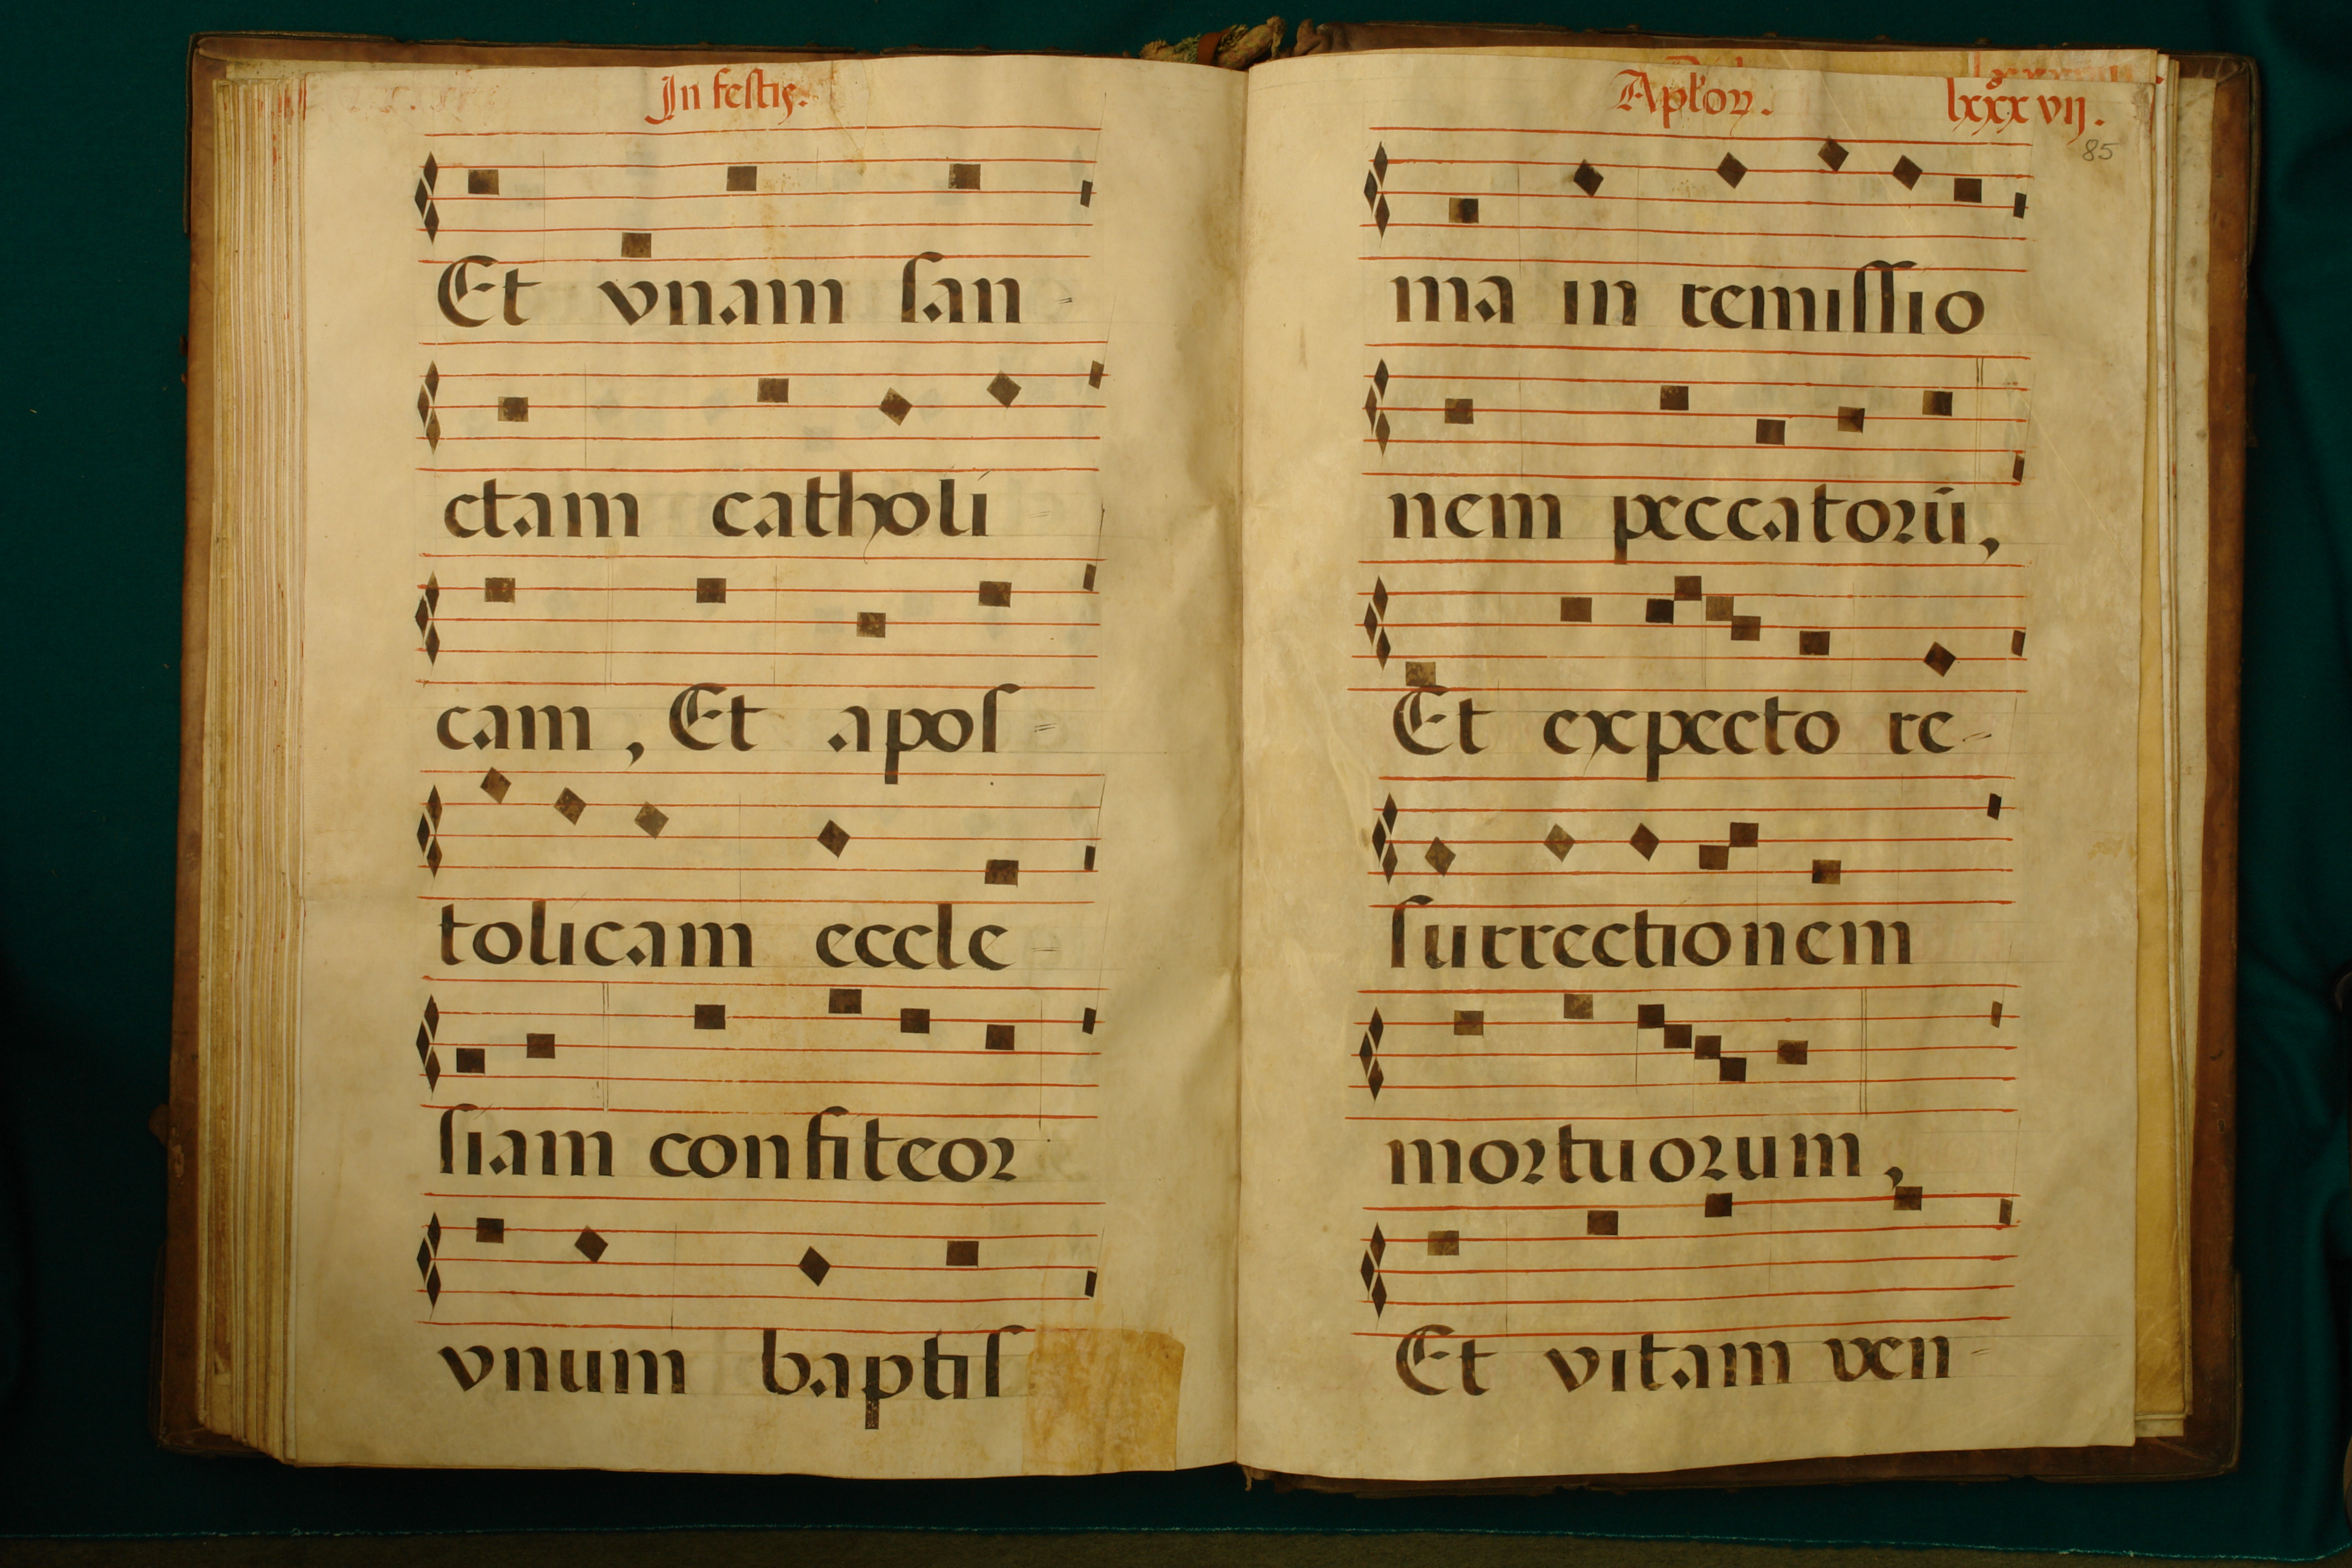 In festis.
Et vnam san-
ctam catholi-
cam, Et apos-
tolicam eccle-
siam confiteor
vnum baptis
Aplõꝝ.
lxxxvij.
85
ma in remissio
nem peccatorũ,
Et expecto re-
surrectionem
mortuorum,
Et vitam ven-